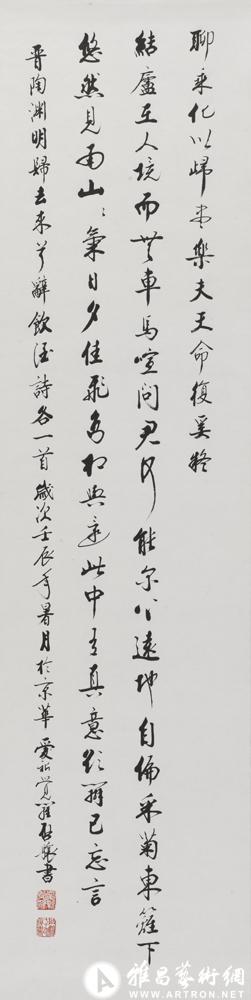 聊乘化以歸盡樂夫天命復奚疑
結廬在人境而無車馬喧問君何能尔心遠地自偏采菊東籬下
悠然見南山山氣日夕佳飛鳥相與還此中有真意欲辯已忘言
晉陶淵明歸去來兮辭飲酒詩各一首歲次壬辰年暑月於京華愛新覺羅啟驤書
雅昌藝術網
WWW.ARTRON.NET